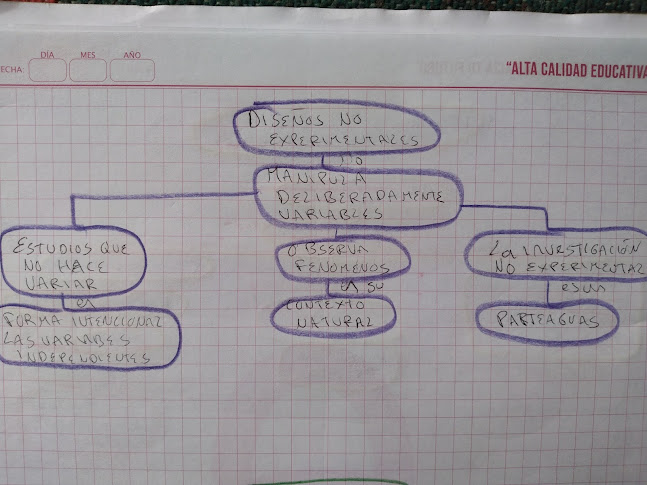 DÍA MES AÑO
ECHA:
"ALTA CALIDAD EDUCATIVA
DISEÑOS NO
EXPERIMENTALES
NO
MANIPULA
DELIBERADAMENTE
VARIABLES
ESTUDIOS QUE
NO HACE
VARIAR
en
FORMA INTENCIONAL
LAS VARIABLES
INDEPENDIENTES
OBSERVA
FENOMENOS
EN SU
CONTEXTO
NATURAL
La INVESTIGACIÓN
NO EXPERIMENTAL
es un
PARTEAGUAS